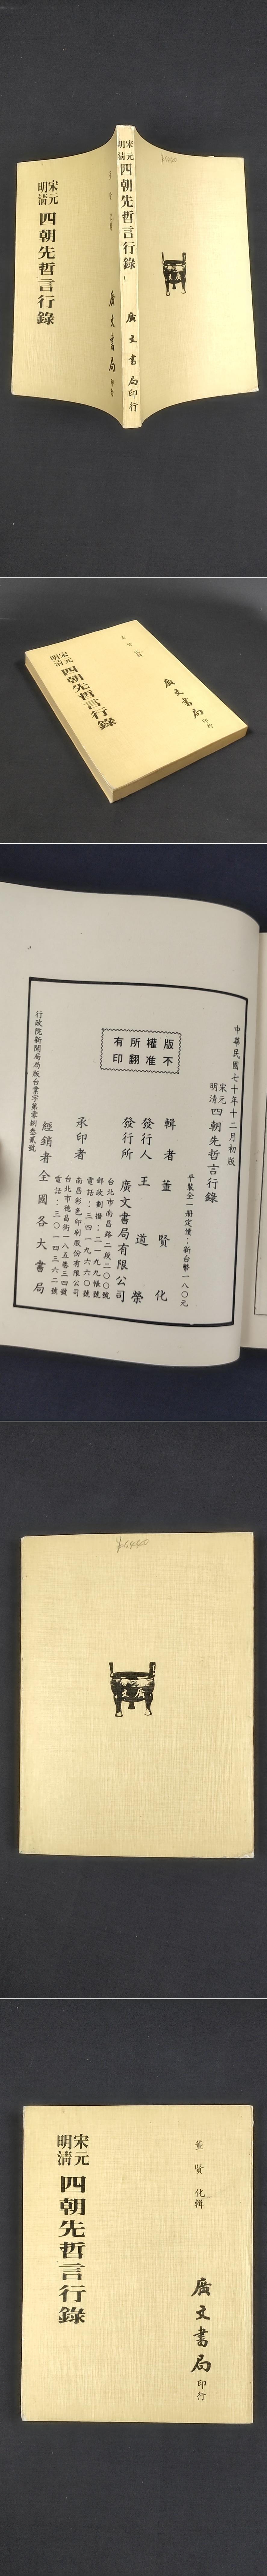 宋元
明清
四朝先哲言行錄
廣文書局
印行
宋元
明清
四朝先哲言行錄
廣文書局印行
宋元
明清
四朝先哲言行錄
廣文書局
印行
中華民國七十年十二月初版
宋元
明清
四朝先哲言行錄
平裝全一冊定價：新台幣一八〇元
版權所有
不准翻印
輯者 董賢化
發行人 王道榮
發行所 廣文書局有限公司
台北市南昌路二段二〇〇號
郵政劃撥：二一九九帳號
電話：三四一九六六〇號
承印者 南昌彩色印刷股份有限公司
台北市德昌街一八五巷三四號
電話：三〇一四三六二號
經銷者 全國各大書局
行政院新聞局局版台業字第零捌叁貳號
廣文
宋元
明清
四朝先哲言行錄
董賢化輯
廣文書局
印行